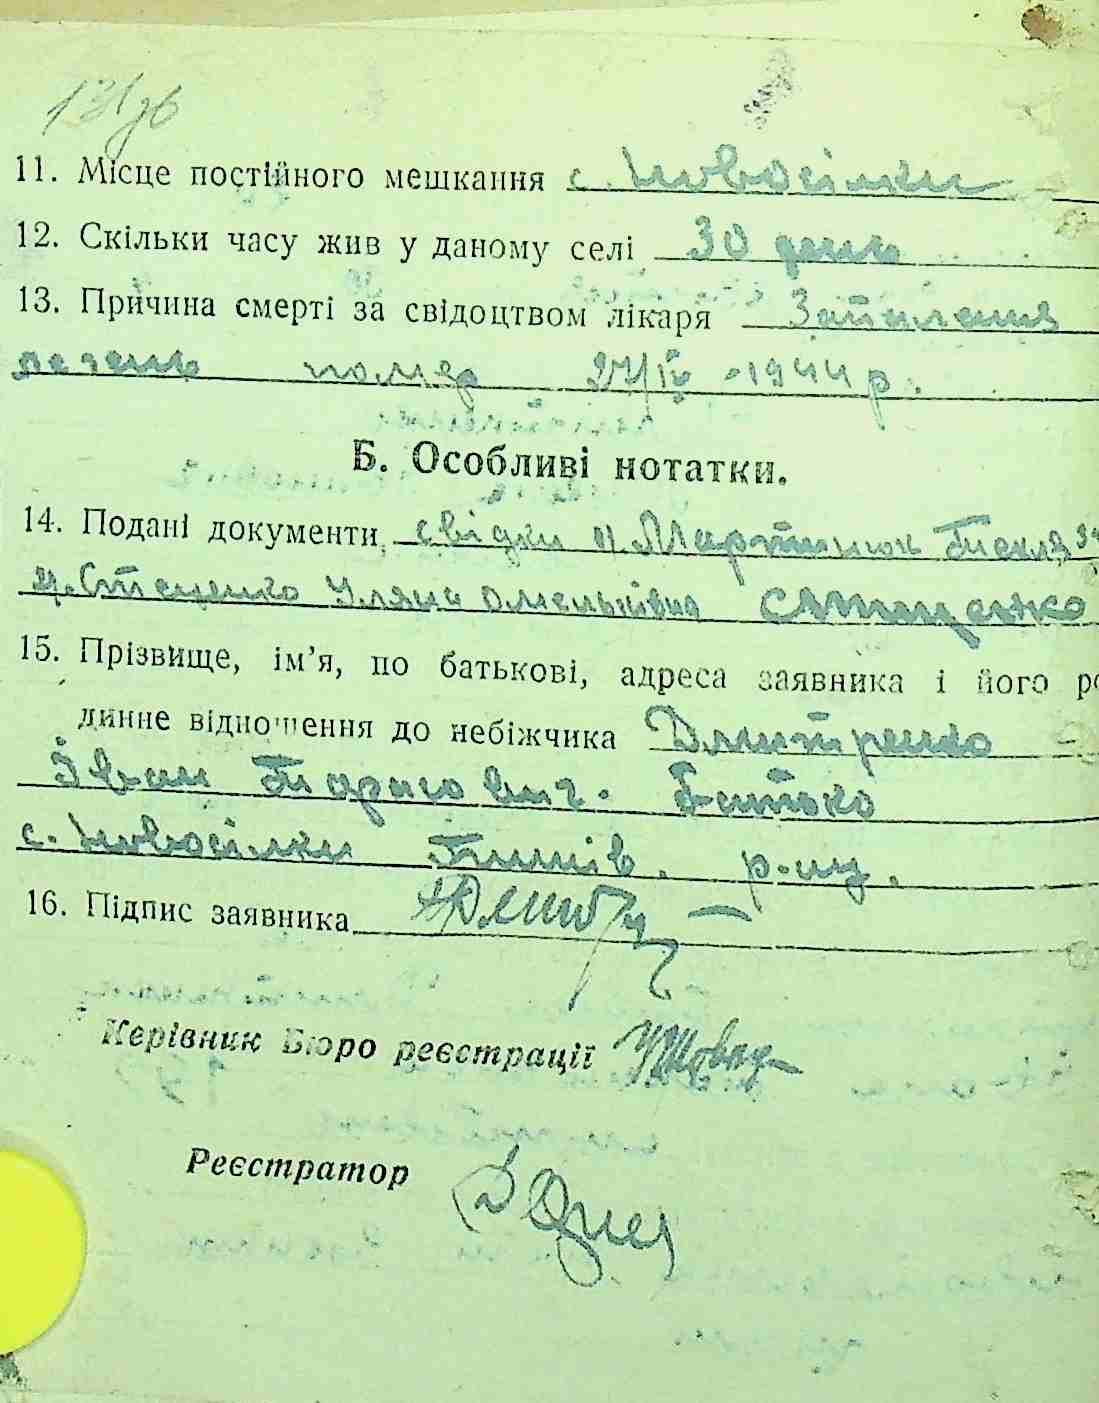 11. Місце постійного мешкання с. Новосілки
12. Скільки часу жив у даному селі 30 день
13. Причина смерті за свідоцтвом лікаря Запалення
печень помер 27/IV - 1944 р.
Б. Особливі нотатки.
14. Подані документи свідки и. Мартинюк Текля
и. Стеценко Уляна Омельківна
15. Прізвище, ім'я, по батькові, адреса заявника і його ро
динне відношення до небіжчика Дмитренко
Іван Тарасович. Батько
с. Новосілки р-ну.
16. Підпис заявника
Керівник Бюро реєстрації
Реєстратор